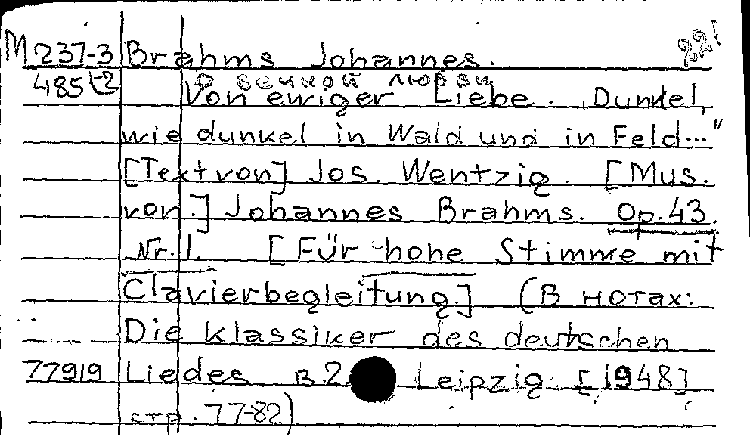 М 237-3 Brahms Johannes. 221
485 t2 О вечной любви
Von ewiger Liebe. Dunkel,
wie dunkel in Wald und in Feld..."
[Text von] Jos. Wentzig. [Mus.
von.] Johannes Brahms. Op. 43.
Nr. 1. [Für hohe Stimme mit
Clavierbegleitung.] (В нотах:
Die Klassiker des deutschen
77919 Liedes B.2 Leipzig [1948]
стр. 77-82)